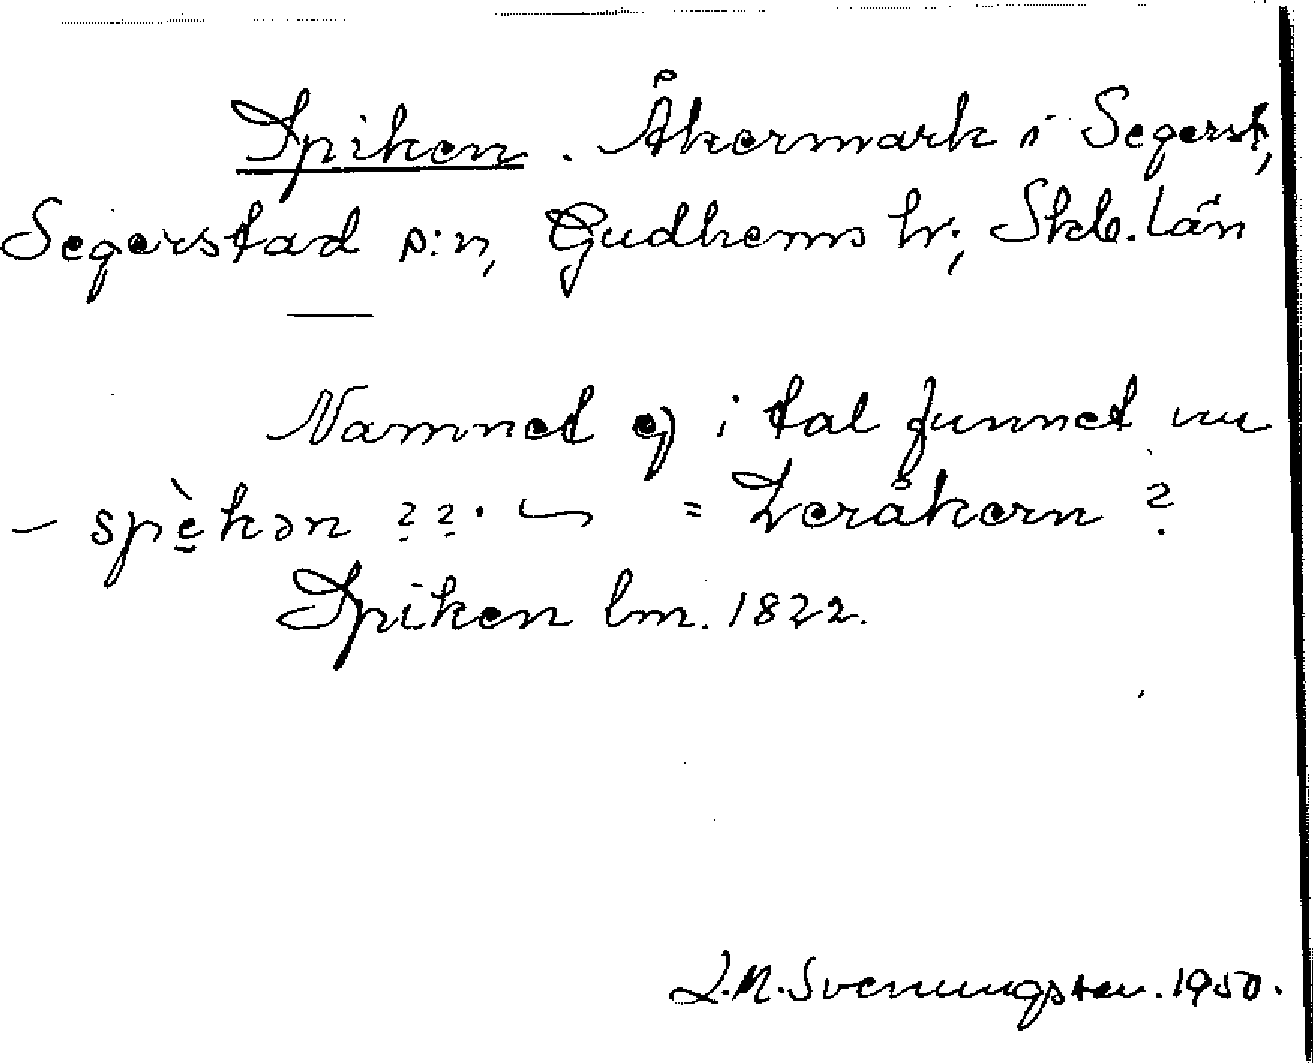 Spiken. Åkermark i Segerst,
Segerstad s:n, Gudhems hr; Skb. län
Namnet ej i tal funnet nu
– spèkən ??. = Leråkern ?
Spiken lm. 1822.
J.M. Svenungsson. 1950.